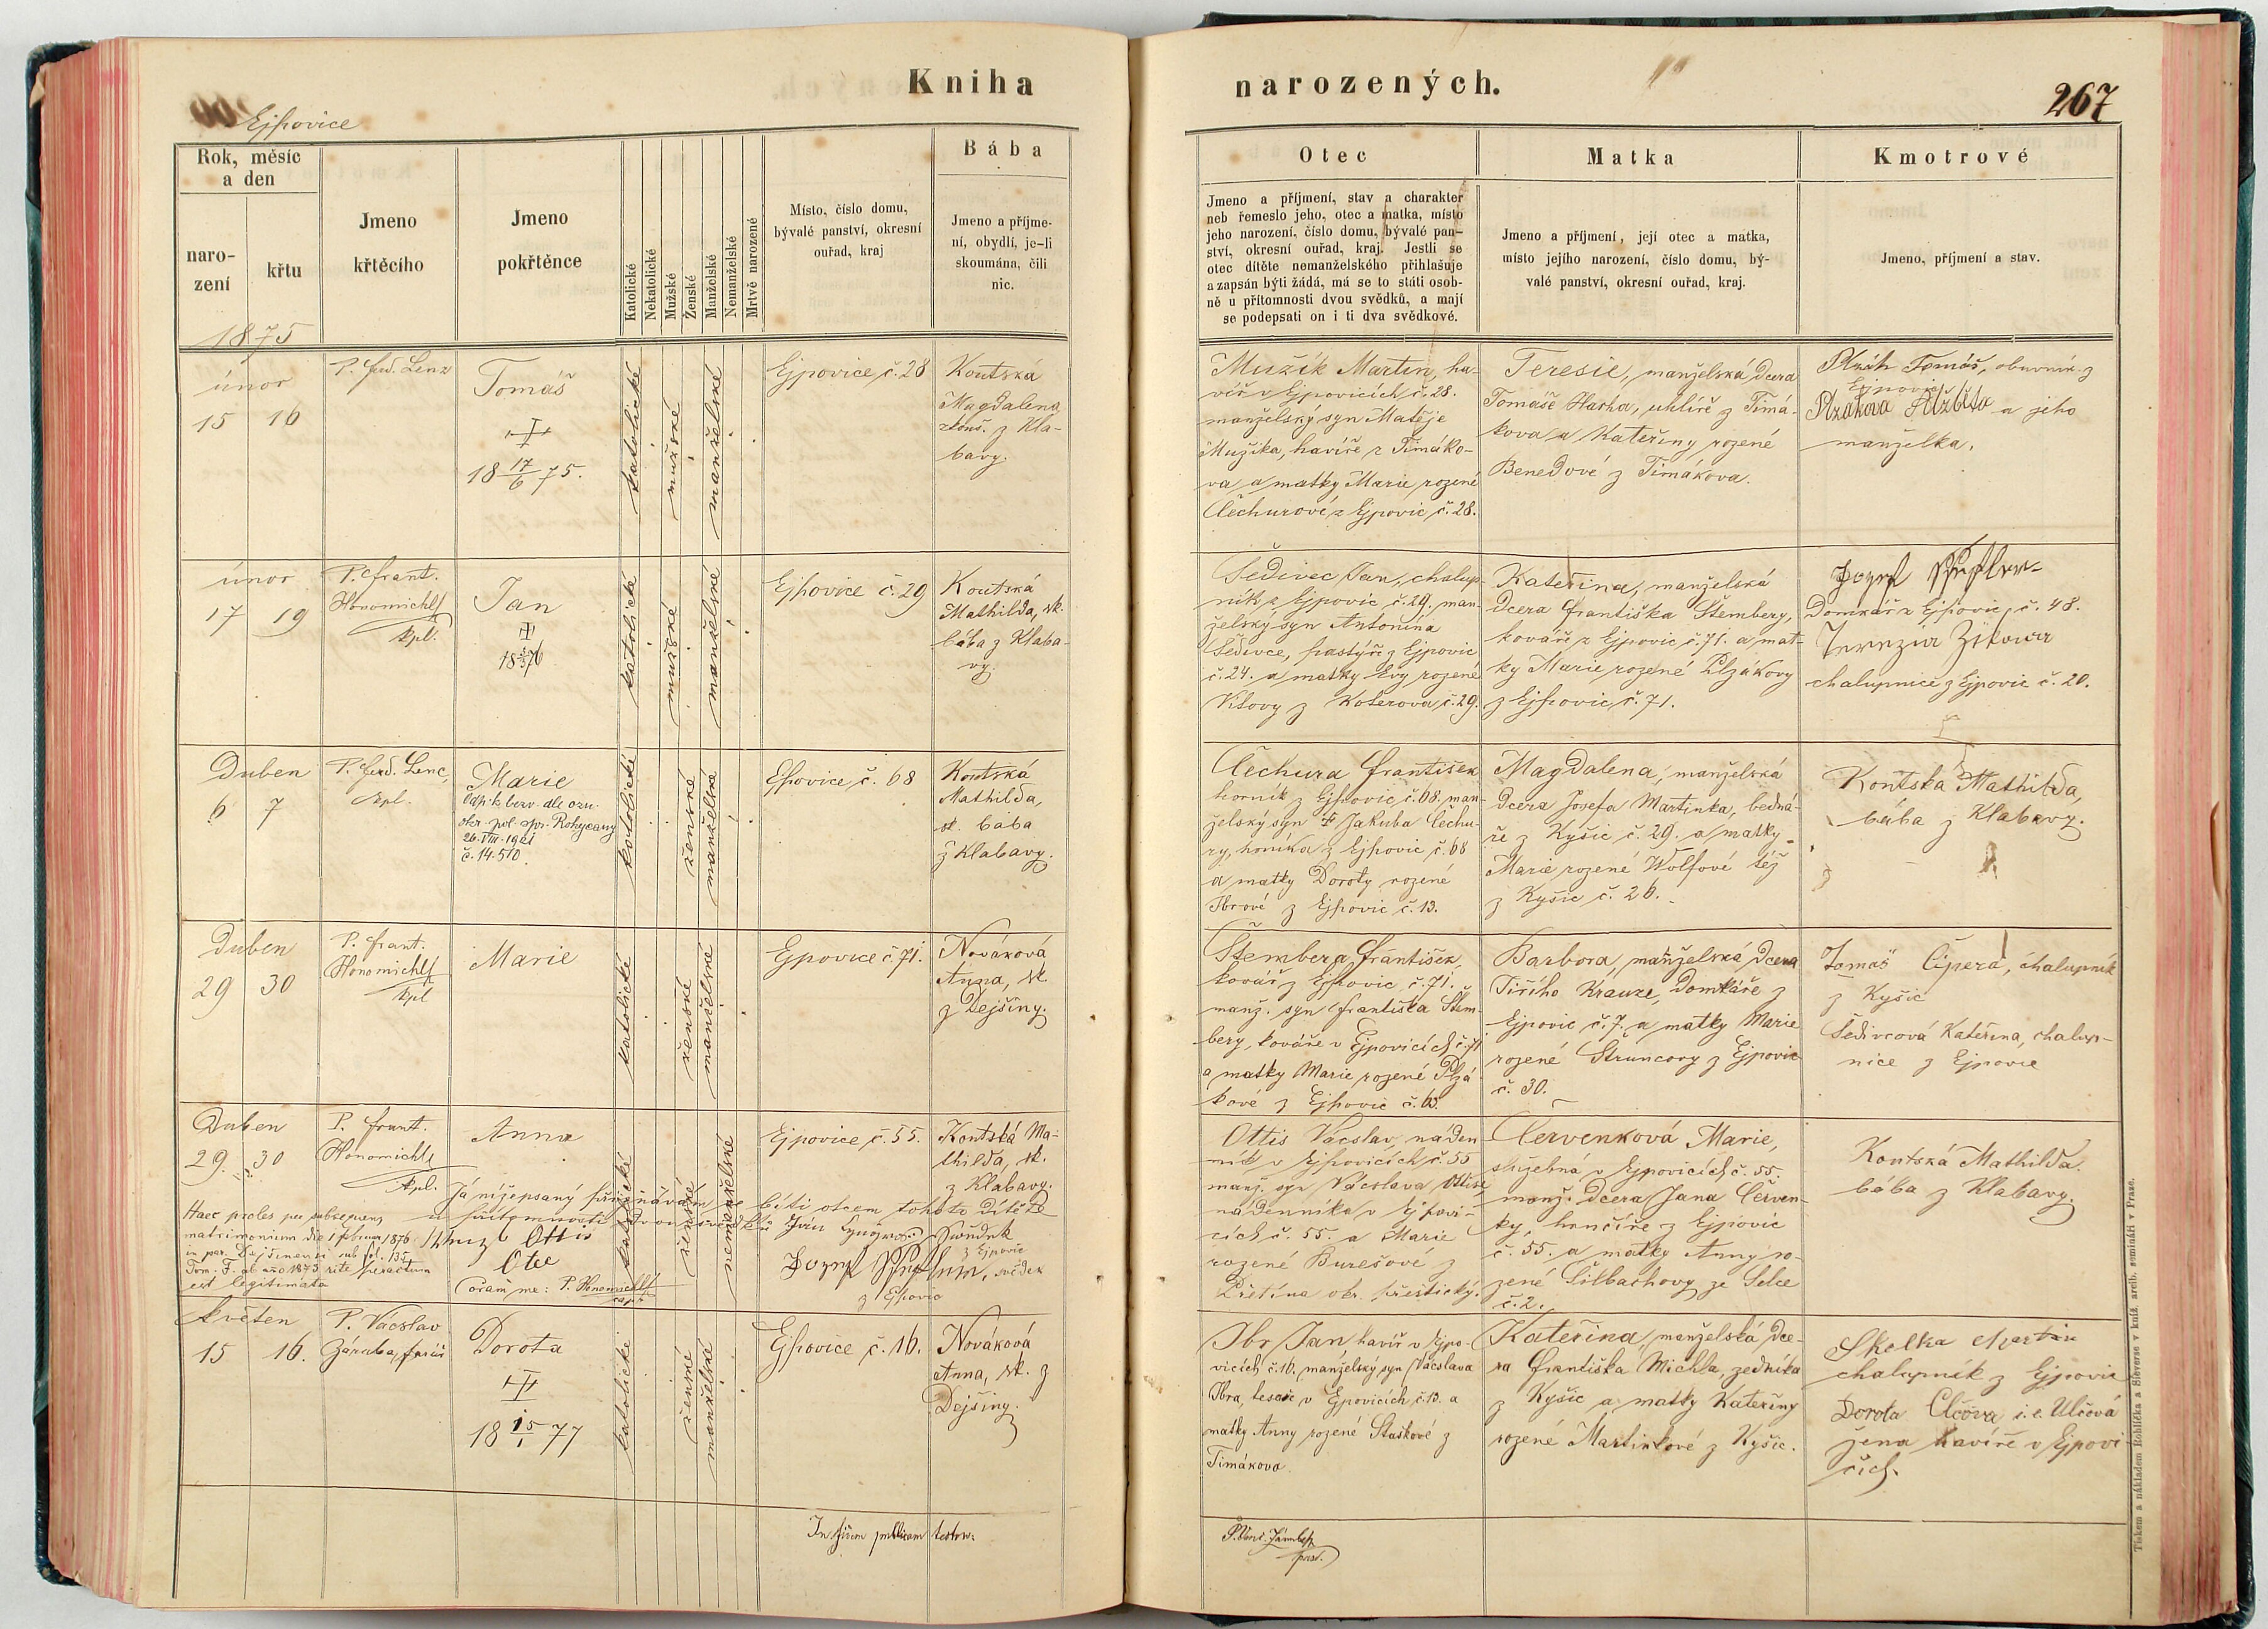 Kniha
narozených.
267
Ejpovice
Rok, měsíc
a den
naro-
zení
křtu
1875
Jmeno
křtěcího
Jmeno
pokřtěnce
Katolické
Nekatolické
Mužské
Ženské
Manželské
Nemanželské
Mrtvě narozené
Místo, číslo domu,
bývalé panství, okresní
ouřad, kraj
Bába
Jmeno a příjme-
ní, obydlí, je-li
skoumána, čili
nic.
Otec
Jmeno a příjmení, stav a charakter
neb řemeslo jeho, otec a matka, místo
jeho narození, číslo domu, bývalé pan-
ství, okresní ouřad, kraj. Jestli se
otec dítěte nemanželského přihlašuje
a zapsán býti žádá, má se to státi osob-
ně u přítomnosti dvou svědků, a mají
se podepsati on i ti dva svědkové.
Matka
Jmeno a příjmení, její otec a matka,
místo jejího narození, číslo domu, bý-
valé panství, okresní ouřad, kraj.
Kmotrové
Jmeno, příjmení a stav.
únor
15 16
P. Ferd. Lenz
Tomáš
18 17/6 75.
katolické
mužské
manželské
Ejpovice č. 28
Koutská
Magdalena
zkouš. z Kla-
bavy.
Mužík Martin, ha-
víř v Ejpovicích č. 28.
manželský syn Matěje
Mužíka, havíře z Timáko-
va a matky Marie rozené
Čechurové z Ejpovic č. 28.
Teresie, manželská dcera
Tomáše Hasha, uhlíře z Timá-
kova a Kateřiny rozené
Benedové z Timákova.
Tomáš, obuvník z
Ejpovic
Plzákova Alžběta a jeho
manželka.
únor
17 19
P. Frant.
Honomichl
kpl.
Jan
katolické
mužské
manželské
Ejpovice č. 29
Koutská
Mathilda, zk.
bába z Klaba-
vy.
Šedivec Jan, chalup-
ník z Ejpovic č. 29. man-
želský syn Antonína
Šedivce, pastýře z Ejpovic
č. 24. a matky Evy rozené
z Koterova č. 29.
Kateřina, manželská
dcera Františka Štemberg,
kováře z Ejpovic č. 71. a mat-
ky Marie rozené Plzákovy
z Ejpovic č. 71.
Jozef
Domkář z Ejpovic, č. 48.
Terezia Zikova
chalupnice z Ejpovic č. 20.
Duben
6 7
P. Ferd. Lenc,
kpl.
Marie
Odp. k bezv. dle ozn.
okr. pol. spr. Rokycany
26. VIII. 1921
č. 14.510.
katolické
ženské
manželské
Ejpovice č. 68
Koutská
Mathilda,
zk. bába
z Klabavy.
Čechura František
horník z Ejpovic č. 68. man-
želský syn † Jakuba Čechu-
ry, horníka z Ejpovic č. 68
a matky Doroty rozené
Ibrové z Ejpovic č. 13.
Magdalena, manželská
dcera Josefa Martinka, bedná-
ře z Kyšic č. 29. a matky
Marie rozené Wolfové též
z Kyšic č. 26.
Koutská Mathilda,
bába z Klabavy.
Duben
29 30
P. Frant.
Honomichl
kpl
Marie
katolické
ženské
manželské
Ejpovice č. 71.
Nováková
Anna, zk.
z Dejšiny.
Štemberg František,
kovář z Ejpovic, č. 71.
manž. syn Františka Štem-
berg, kováře v Ejpovicích č. 71
a matky Marie rozené Plzá-
kové z Ejpovic č. 63.
Barbora, manželská dcera
Jiřího Krauze, domkáře z
Ejpovic č. 7. a matky Marie
rozené Štruncovy z Ejpovic
č. 30.
Tomáš Čipera, chalupník
z Kyšic
Šedivcová Kateřina, chalup-
nice z Ejpovic
Duben
29. 30
P. Frant.
Honomichl
kpl.
Anna
katolické
ženské
nemanželské
Ejpovice č. 55.
Koutská Ma-
thilda, zk.
z Klabavy.
Já nížepsaný přiznávám býti otcem tohoto dítěte
u přítomnosti dvou svědků
Haec proles per subsequens
matrimonium die 1 februar 1876
in par. Dejšinensi sub fol. 135
Tom. F. ab ao 1873 rite peractum
est legitimata
Ottis
Otec
Coram me: P. Honomichl
z Ejpovic
Jozef, svědek
z Ejpovic
Ottis Vácslav, náden-
ník v Ejpovicích č. 55
manž. syn Vácslava Ottise,
nádenníka v Ejpovi-
cích č. 55. a Marie
rozené Burešové z
okr. přeštický.
Červenková Marie,
služebná v Ejpovicích č. 55.
manž. dcera Jana Červen-
ky, hrnčíře z Ejpovic
č. 55. a matky Anny ro-
zené Šilbachovy ze Selce
č. 2.
Koutská Mathilda.
bába z Klabavy.
Květen
15 16.
P. Vácslav
Záruba, farář
Dorota
18 15/1 77
katolické
ženské
manželské
Ejpovice č. 16.
Nováková
Anna, zk. z
Dejšiny.
Ibr Jan, havíř v Ejpo-
vicích č. 16, manželský syn Vácslava
Ibra, tesaře v Ejpovicích č. 13. a
matky Anny rozené Staškové z
Timákova.
Kateřina, manželská dce-
ra Františka Michla, zedníka
z Kyšic a matky Kateřiny
rozené Martinkové z Kyšic.
Skolka Martin
chalupník z Ejpovic
Dorota Člčova i.e. Ulčová
žena havíře v Ejpovi-
cích.
In fidem publicam testor.
Tiskem a nákladem Rohlíčka a Sieverse v kníž. arcib. semináři v Praze.